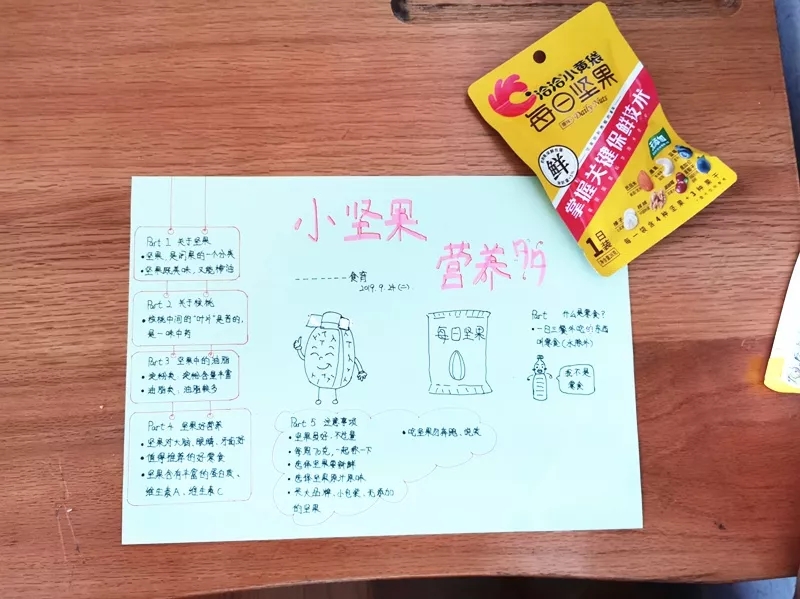 小坚果
营养多
-------食育
2019.9.24(二)
Part 1 关于坚果
• 坚果 是闭果的一个分类
• 坚果既美味,又能榨油
Part 2 关于核桃
• 核桃中间的“叶片”是苦的,
是一味中药
Part 3 坚果中的油脂
• 淀粉类,淀粉含量丰富
• 油脂类,油脂较多
Part 4 坚果好营养
• 坚果对大脑、眼睛、牙齿好
• 值得推荐的好零食
• 坚果含有丰富的蛋白质、
维生素A、维生素C
每日坚果
Part 什么是零食?
• 一日三餐外吃的东西
叫零食(水除外)
我不是
零食
Part 5 注意事项
• 坚果虽好,不过量
• 每周70克,一起数一下
• 选择坚果要新鲜
• 选择坚果原汁原味
• 大品牌、小包装、无添加
的坚果
• 吃坚果勿奔跑、说笑
洽洽小黄袋
每日坚果
Daily Nuts
鲜
掌握关键保鲜技术
1日装
每一袋含4种坚果+3种果干